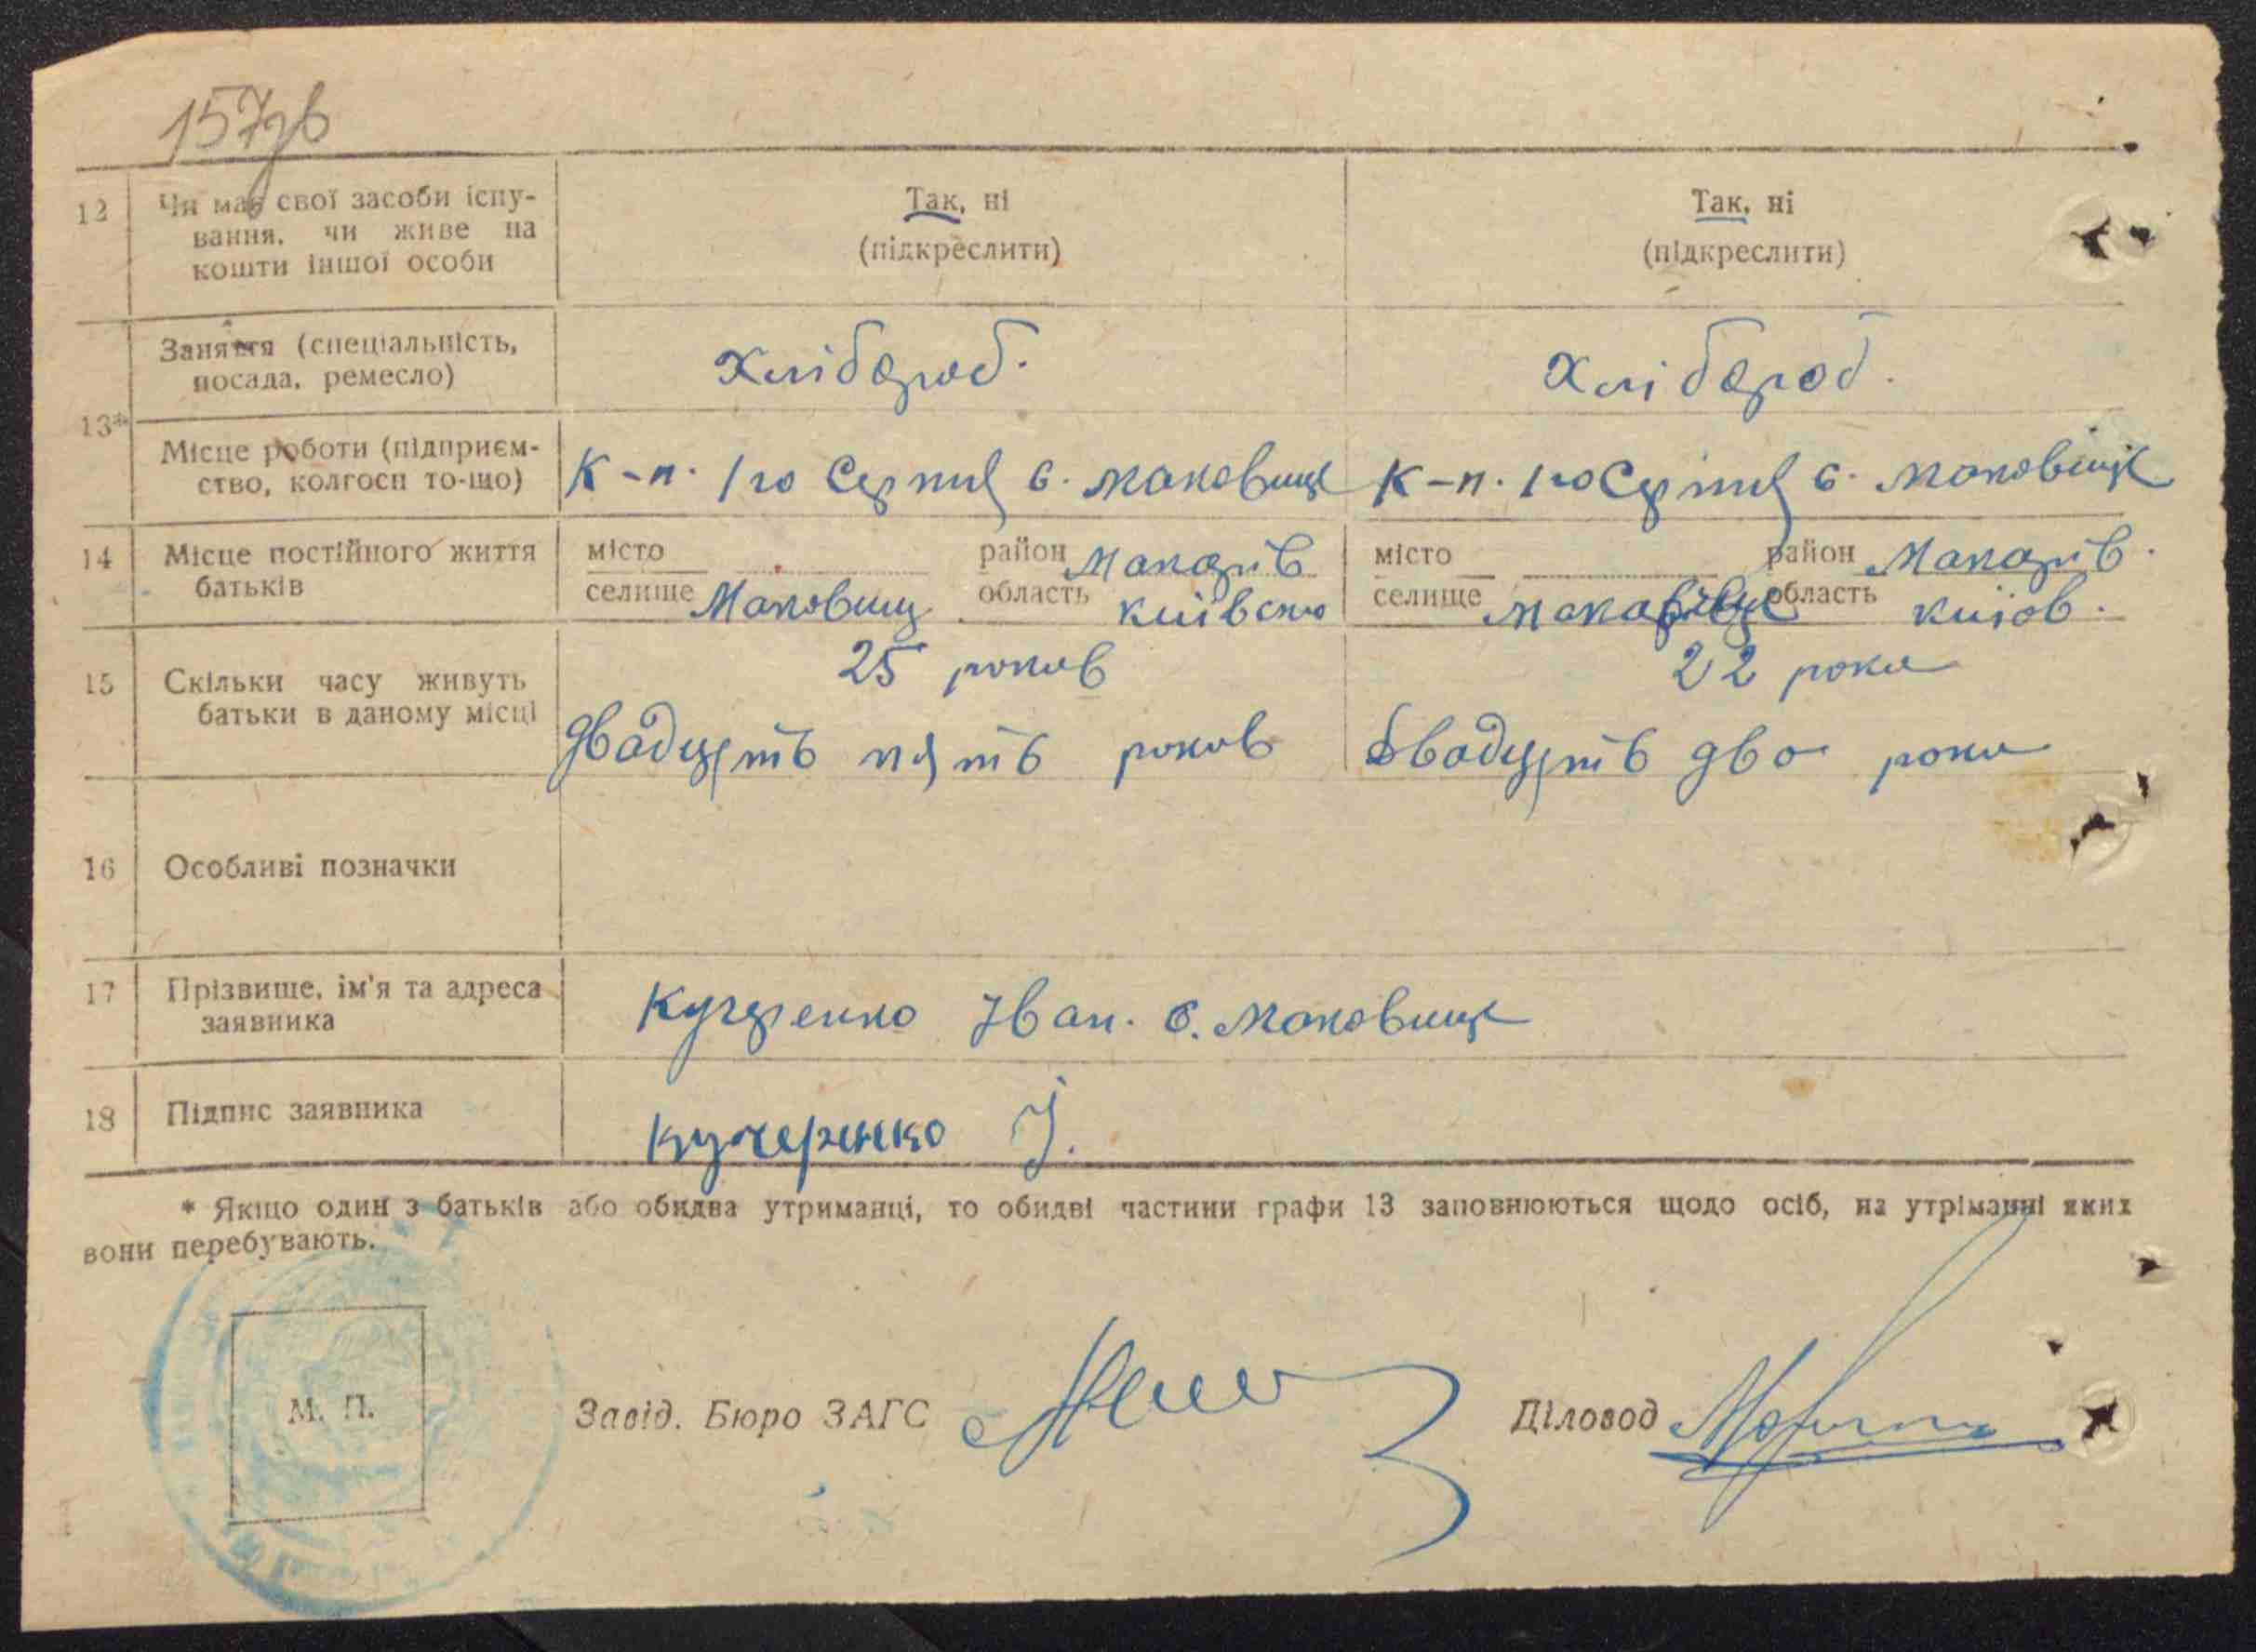 157зв
12 Чи має свої засоби існу-
вання, чи живе на
кошти іншої особи
Так, ні
(підкреслити)
Так, ні
(підкреслити)
13*
Заняття (спеціальність,
посада, ремесло)
Хлібороб.
Хлібороб.
Місце роботи (підприєм-
ство, колгосп то-що)
К-п. 1го Серпня с. Маковище
К-п. 1го Серпня с. Маковище
14 Місце постійного життя
батьків
місто район Макарів
селище Маковищ область київсько
місто район Макарів.
селище область київ.
15 Скільки часу живуть
батьки в даному місці
25 років
двадцять пять років
22 роки
двадцять два роки
16 Особливі позначки
17 Прізвище, ім'я та адреса
заявника
Кучеренко Іван. с. Маковище
18 Підпис заявника
Кучеренко І.
* Якщо один з батьків або обидва утриманці, то обидві частини графи 13 заповнюються щодо осіб, на утріманні яких
вони перебувають.
М. П.
Завід. Бюро ЗАГС
Діловод